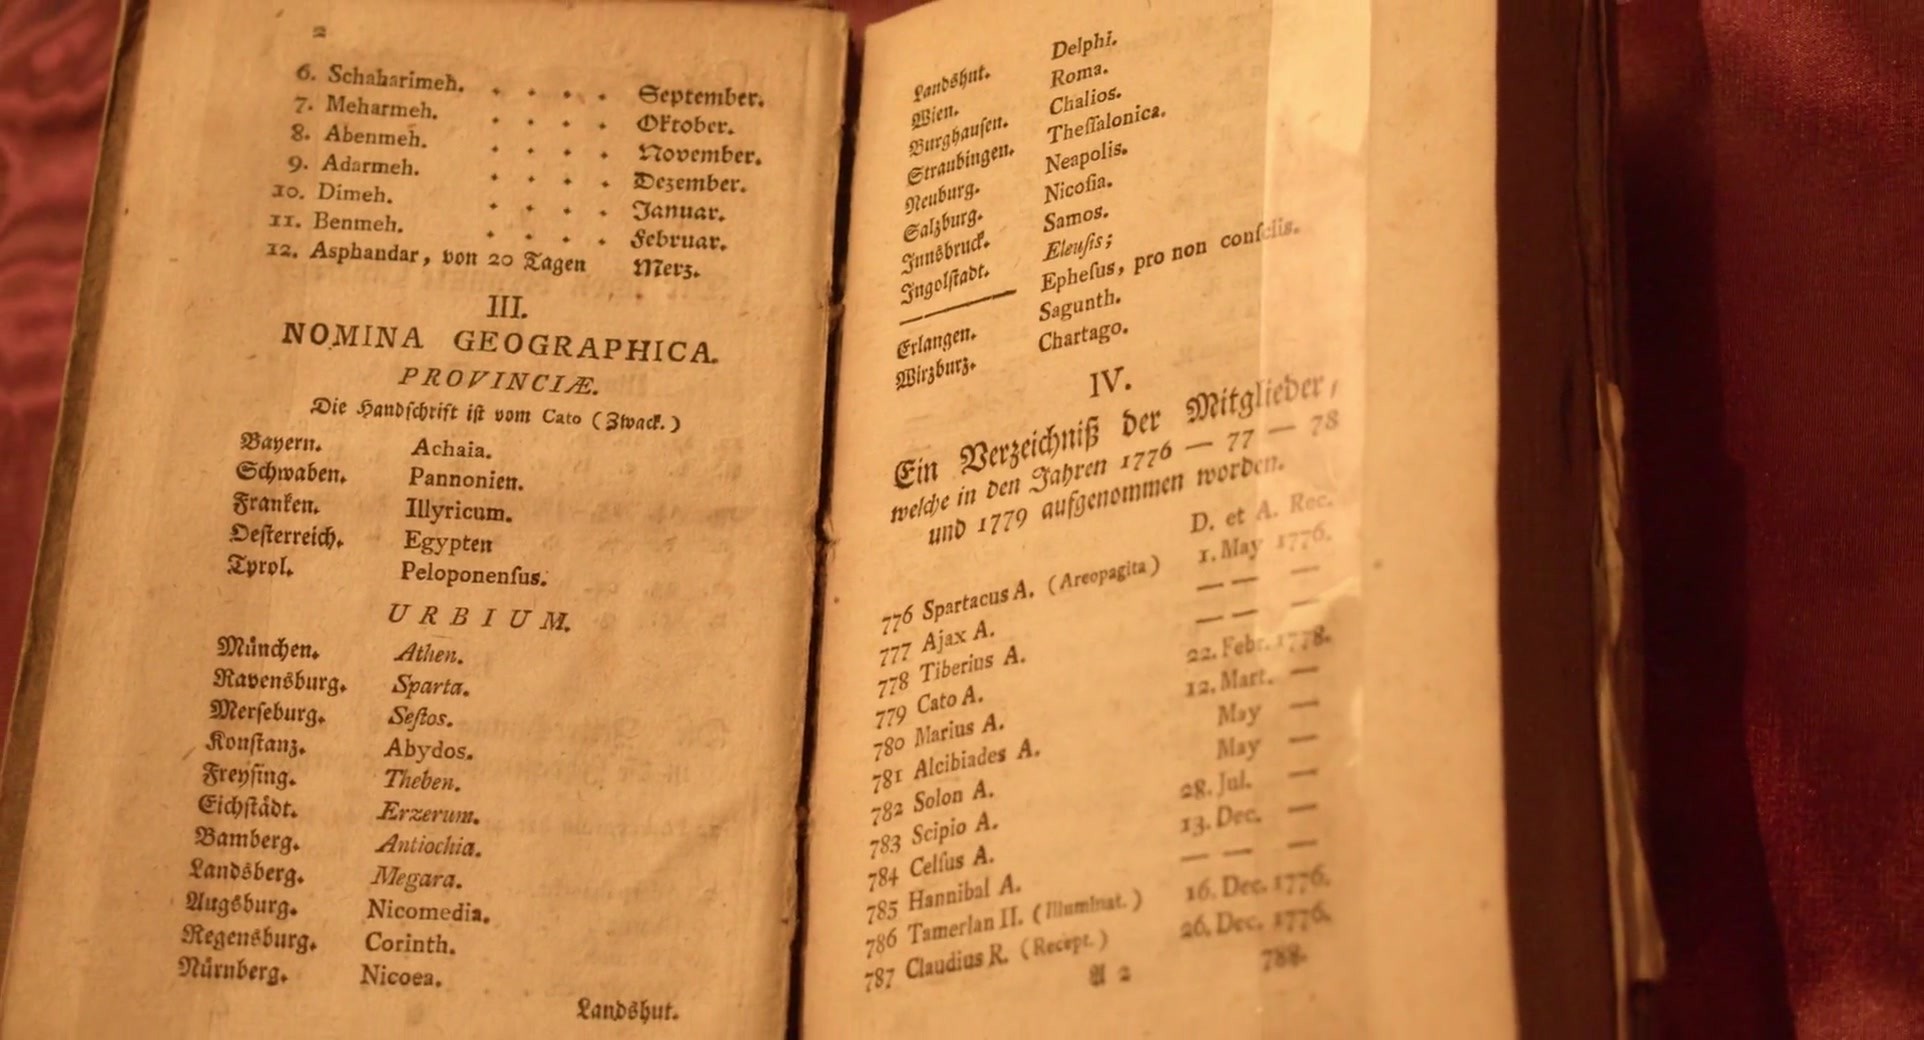 2
6. Schaharimeh. . . . . September.
7. Meharmeh. . . . . Oktober.
8. Abenmeh. . . . . November.
9. Adarmeh. . . . . Dezember.
10. Dimeh. . . . . Januar.
11. Benmeh. . . . . Februar.
12. Asphandar, von 20 Tagen Merz.
III.
NOMINA GEOGRAPHICA.
PROVINCIÆ.
Die Handschrift ist vom Cato (Zwack.)
Bayern. Achaia.
Schwaben. Pannonien.
Franken. Illyricum.
Oesterreich. Egypten
Tyrol. Peloponenſus.
URBIUM.
München. Athen.
Ravensburg. Sparta.
Merseburg. Seſtos.
Konſtanz. Abydos.
Freysing. Theben.
Eichſtädt. Erzerum.
Bamberg. Antiochia.
Landsberg. Megara.
Augsburg. Nicomedia.
Regensburg. Corinth.
Nürnberg. Nicoea.
Landshut.
Landshut. Delphi.
Wien. Roma.
Burghauſen. Chalios.
Straubingen. Theſſalonica.
Neuburg. Neapolis.
Salzburg. Nicoſia.
Innsbruck. Samos.
Ingolſtadt. Eleuſis;
——— Epheſus, pro non conſciis.
Erlangen. Sagunth.
Wirzburz. Chartago.
IV.
Ein Verzeichniß der Mitglieder,
welche in den Jahren 1776 — 77 — 78
und 1779 aufgenommen worden.
D. et A. Rec.
776 Spartacus A. (Areopagita) 1. May 1776.
777 Ajax A. — — —
778 Tiberius A. — — —
779 Cato A. 22. Febr. 1778.
780 Marius A. 12. Mart. —
781 Alcibiades A. May —
782 Solon A. May —
783 Scipio A. 28. Jul. —
784 Celſus A. 13. Dec. —
785 Hannibal A. — — —
786 Tamerlan II. (Illuminat.) 16. Dec. 1776.
787 Claudius R. (Recept.) 26. Dec. 1776.
A 2 788.